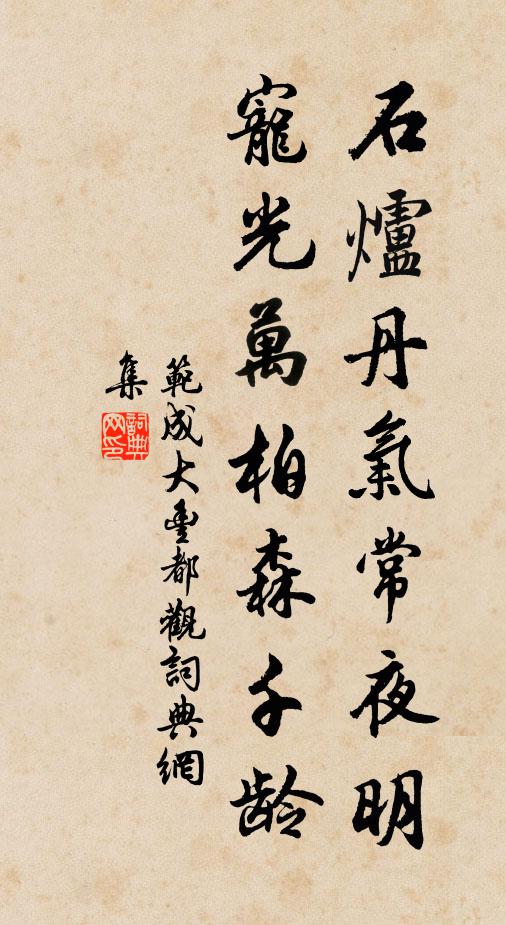 石爐丹氣常夜明
寵光萬柏森千齡
範成大豐都觀詞典網
集
詞典網印